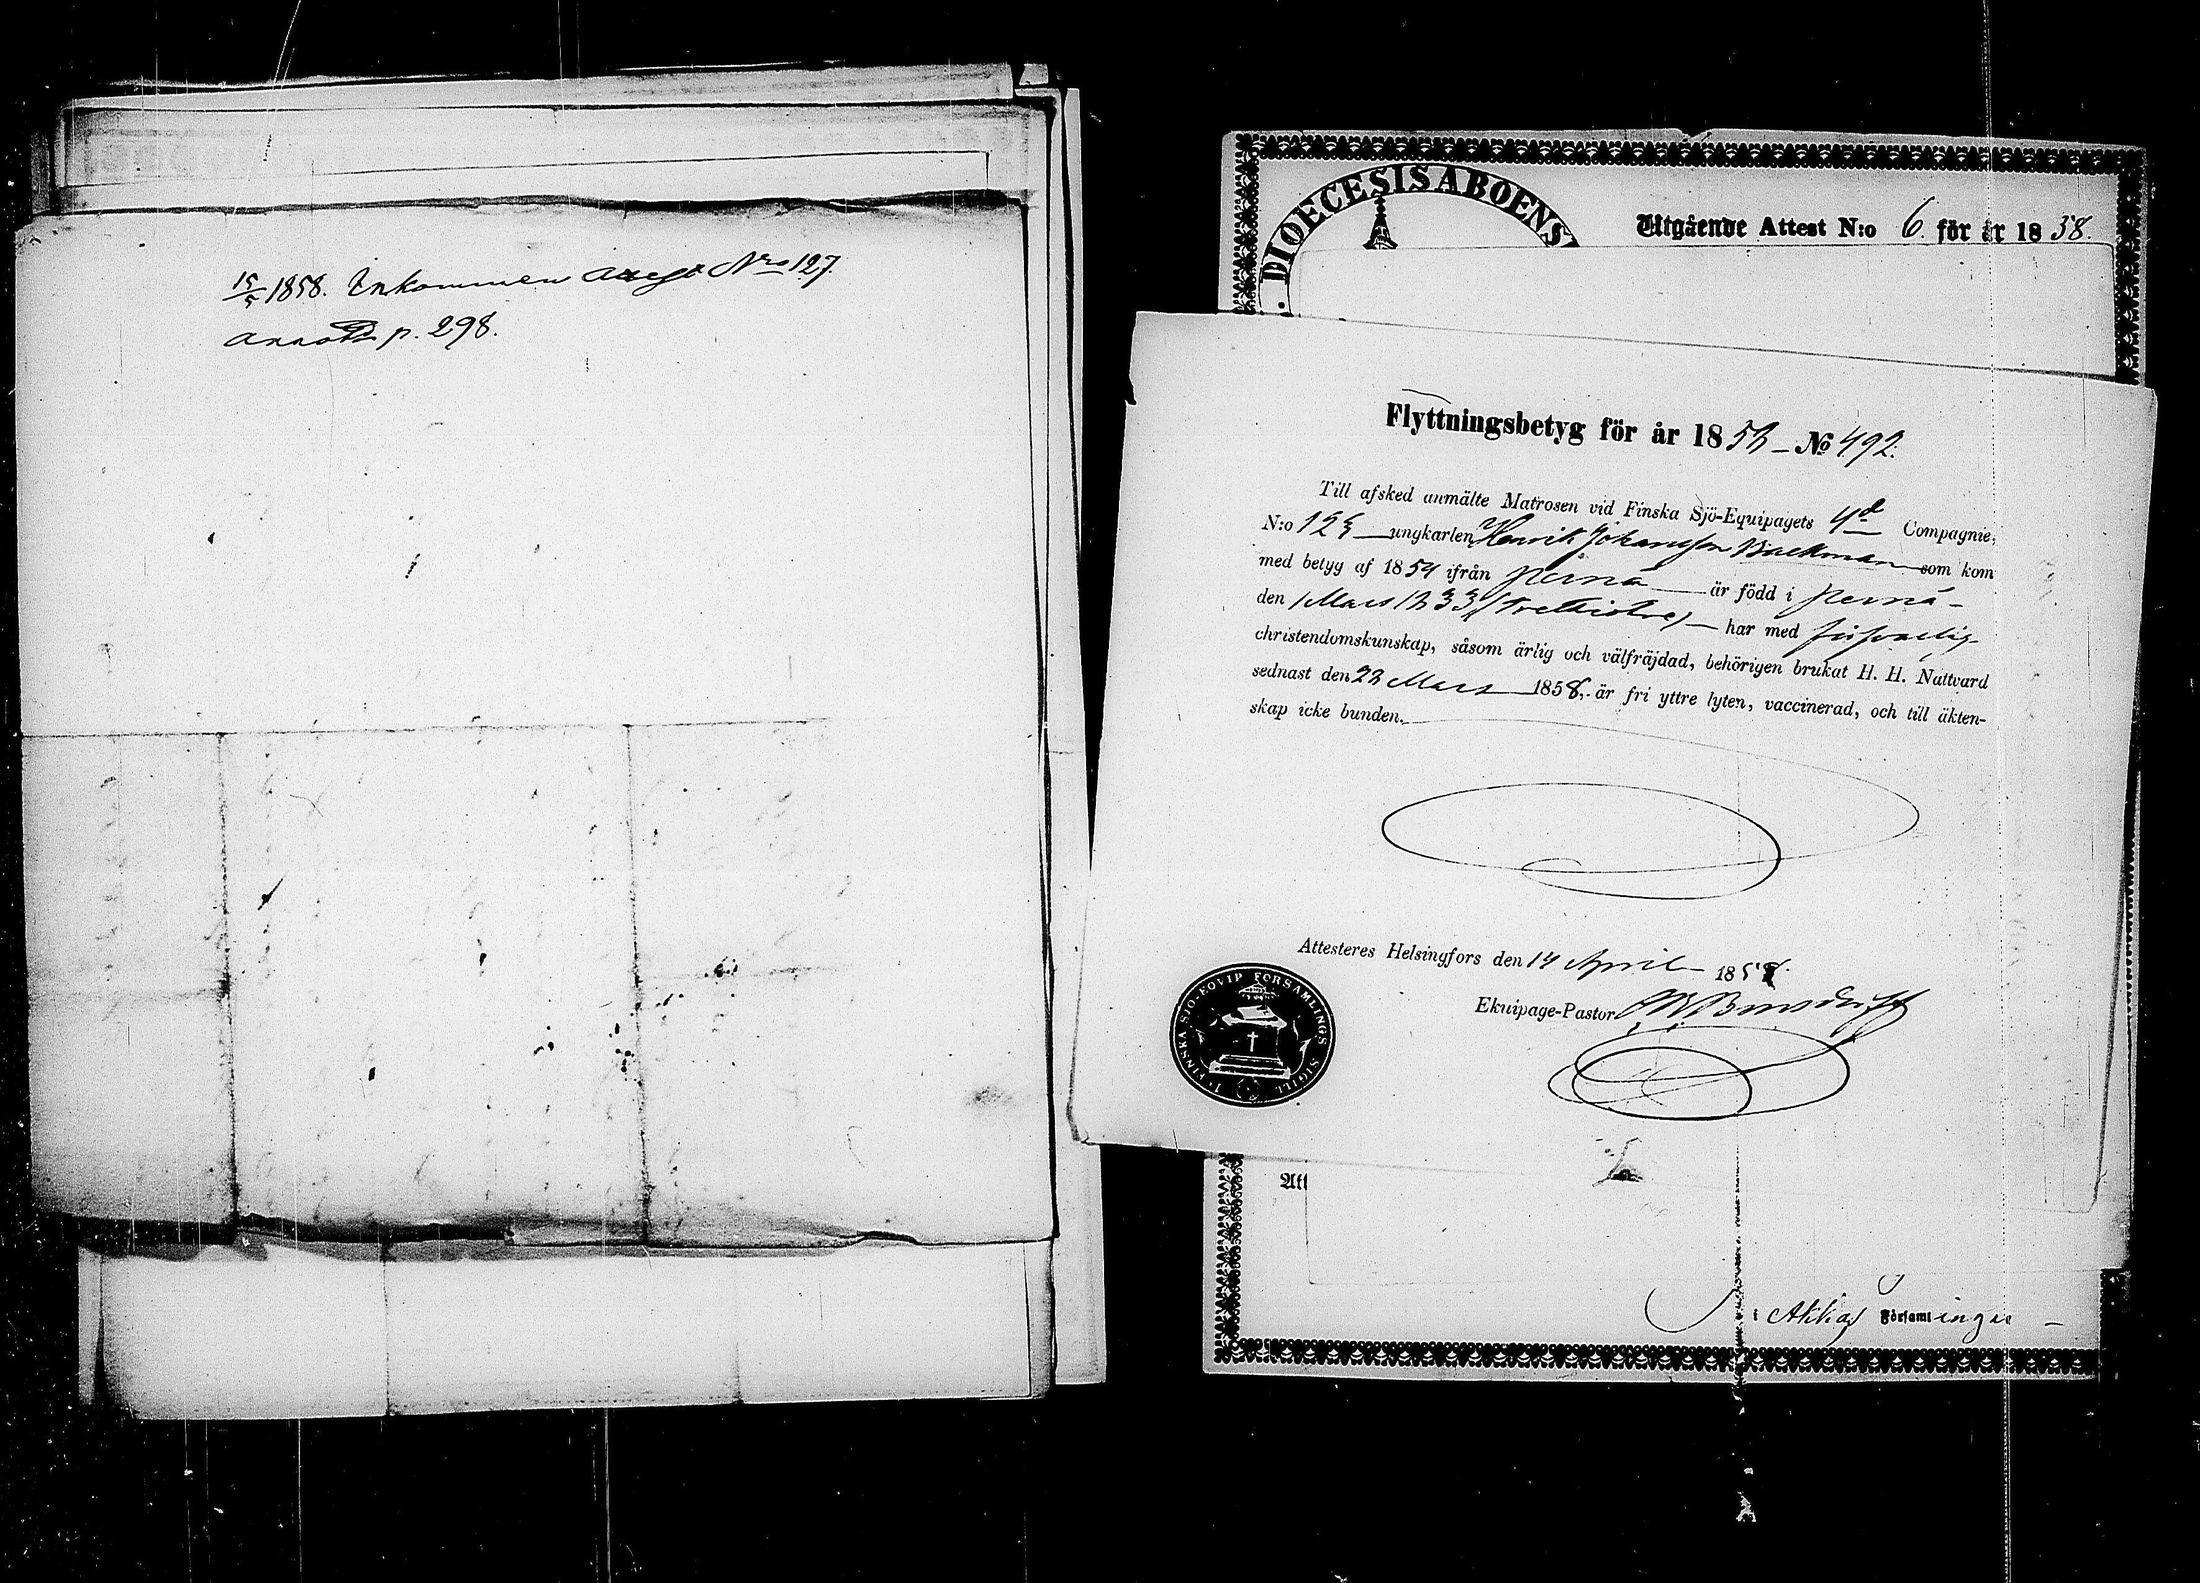 15/5 1858. Inkommen Attest Nro 127.
Annot. p. 298.
DIOECESIS ABOENS
Utgående Attest N:o 6. för år 18 58.
Flyttningsbetyg för år 1858 – No 492.
Till afsked anmälte Matrosen vid Finska Sjö-Equipagets 4d Compagnie,
N:o 123 ungkarlen Henrik Johansson Backman som kom
med betyg af 1854 ifrån Pernå är född i Pernå
den 1 Mars 1833 (Trettiotre) har med försvarlig
christendomskunskap, såsom ärlig och välfräjdad, behörigen brukat H. H. Nattvard
sednast den 22 Mars 1858, är fri yttre lyten, vaccinerad, och till äkten-
skap icke bunden.
Attesteres Helsingfors den 14 April 1858.
Ekuipage-Pastor
I. FINSKA SJÖ-EQVIP FÖRSAMLINGS SIGILL
Att
i Akkas Församlingar